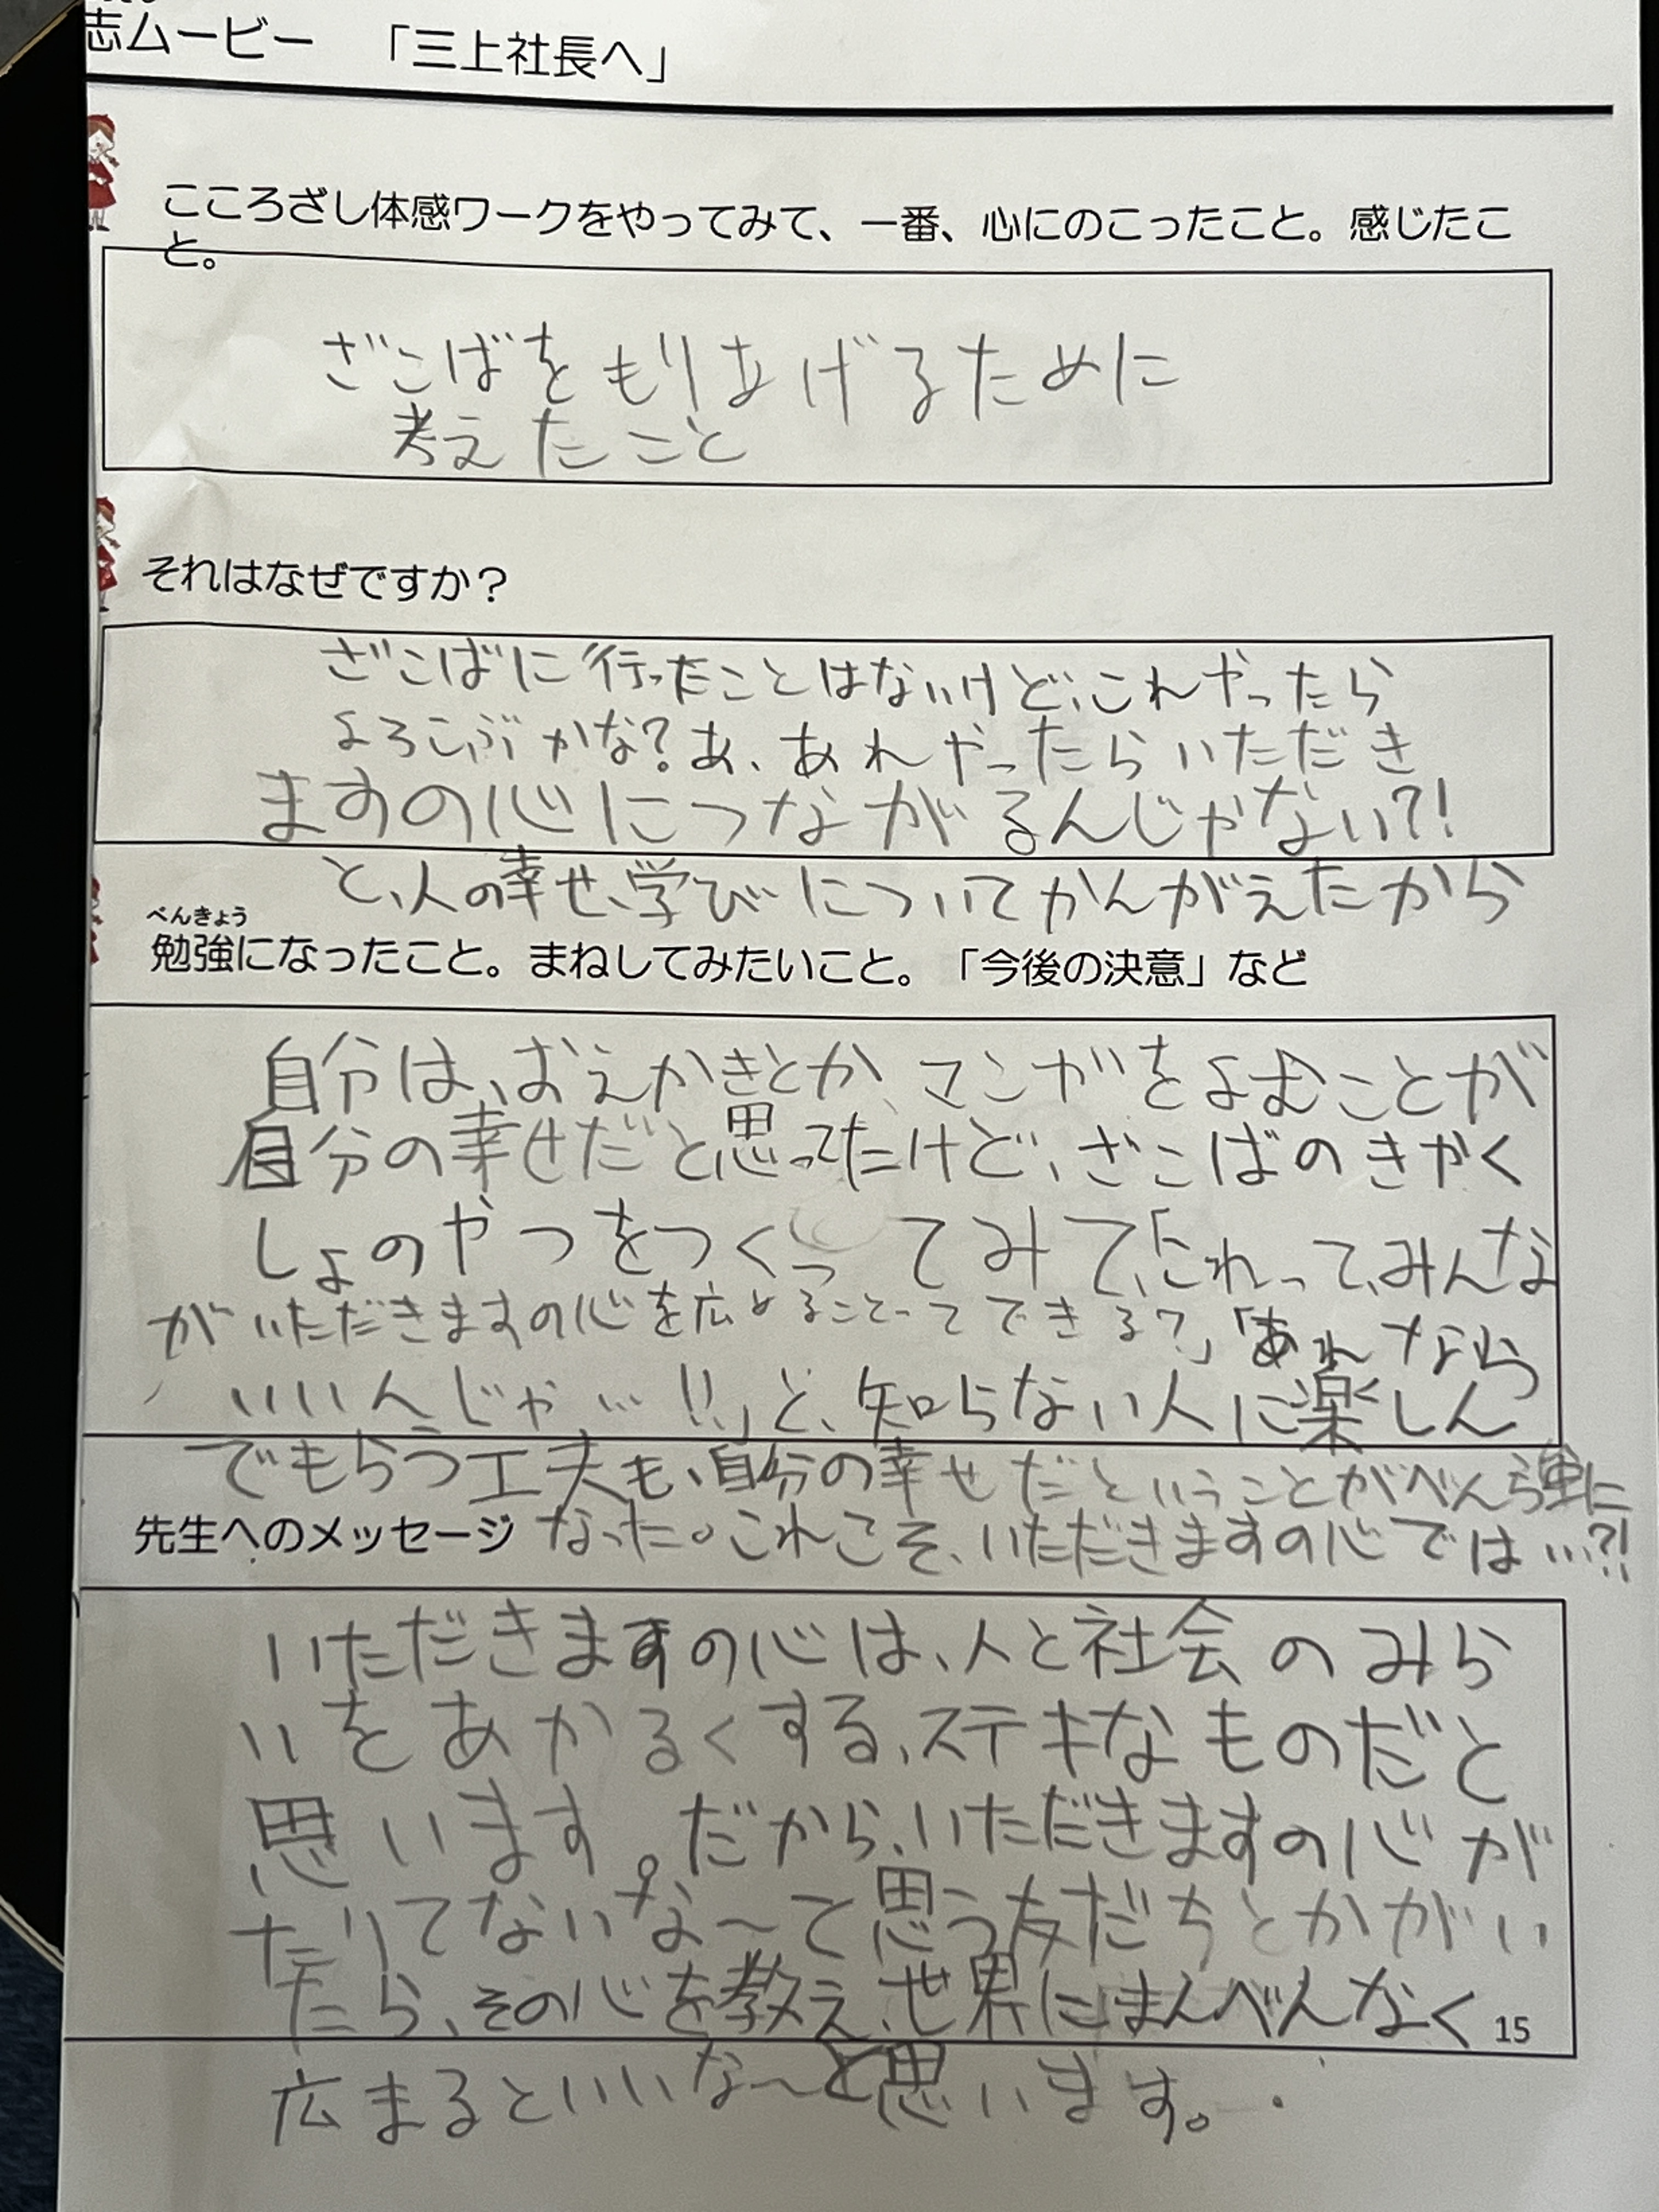 志ムービー 「三上社長へ」
こころざし体感ワークをやってみて、一番、心にのこったこと。感じたこ
と。
ざこばをもりあげるために
考えたこと
それはなぜですか？
ざこばに行ったことはないけど、これやったら
よろこぶかな？あ、あれやったらいただき
ますの心につながるんじゃない？！
と、人の幸せ、学びについてかんがえたから
べんきょう
勉強になったこと。まねしてみたいこと。「今後の決意」など
自分は、おえかきとか、マンガをよむことが
自分の幸せだと思ってたけど、ざこばのきかく
しょのやつをつくってみて、「これって、みんな
がいただきますの心を広めることってできる？」「あれなら
いいんじゃ…!!」と、知らない人に楽しん
でもらう工夫も、自分の幸せだということがべんきょうに
なった。これこそ、いただきますの心では…？！
先生へのメッセージ
いただきますの心は、人と社会のみら
いをあかるくする、ステキなものだと
思います。だから、いただきますの心が
たりてないな〜て思う友だちとかがい
たら、その心を教え、世界にまんべんなく
15
広まるといいな〜と思います。